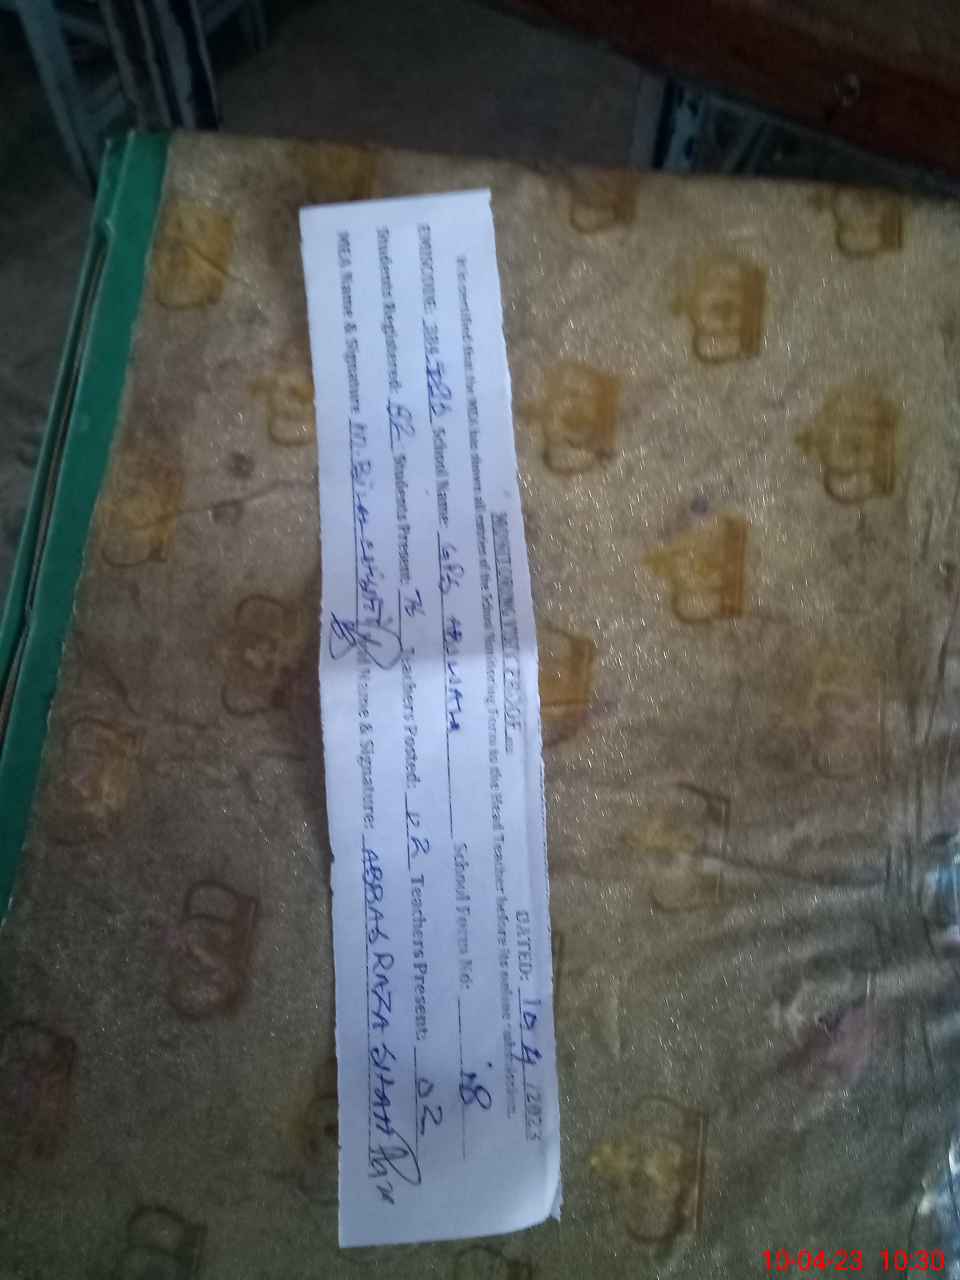 MONITORING VISIT PROOF
DATED: 10 4 /2023
It is certified that the MEA has shown all entries of the School Monitoring Form to the Head Teacher before its online submission.
EMISCODE: School Name: GPS School Form No: 08
Students Registered: 82 Students Present: 76 Teachers Posted: 02 Teachers Present: 02
MEA Name & Signature M. Name & Signature: ABBAS RAZA SHAH
10-04-23 10:30